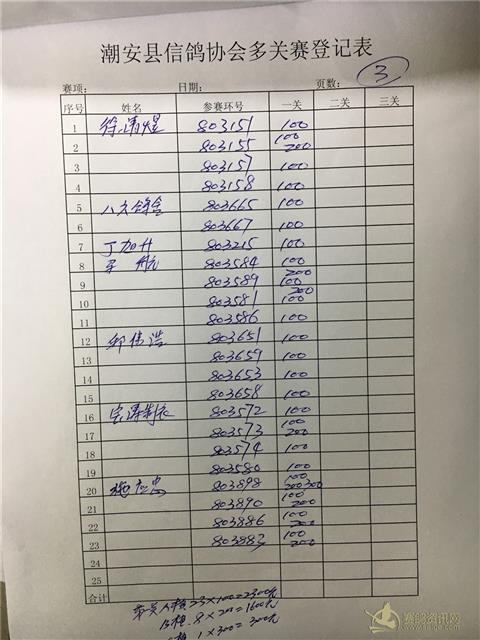 潮安县信鸽协会多关赛登记表
③
赛项： 日期： 页数：
序号 姓名 参赛环号 一关 二关 三关
1 徐清煜 803151 100
2 803155 100 200
3 803157 100
4 803158 100
5 八友鸽舍 803665 100
6 803667 100
7 丁加升 803215 100
8 803584 100 200
9 803589 100 200
10 803581 100
11 803586 100
12 邱伟浩 803651 100
13 803659 100
14 803653 100
15 803658 100
16 803572 100
17 803573 100 200
18 803574 100
19 803580 100
20 803898 100 200 300
21 803890 100 200
22 803886 100 200
23 803883 100 200
24
25
合计
23×100=2300元
8×200=1600元
1×300=300元
赛鸽资讯网